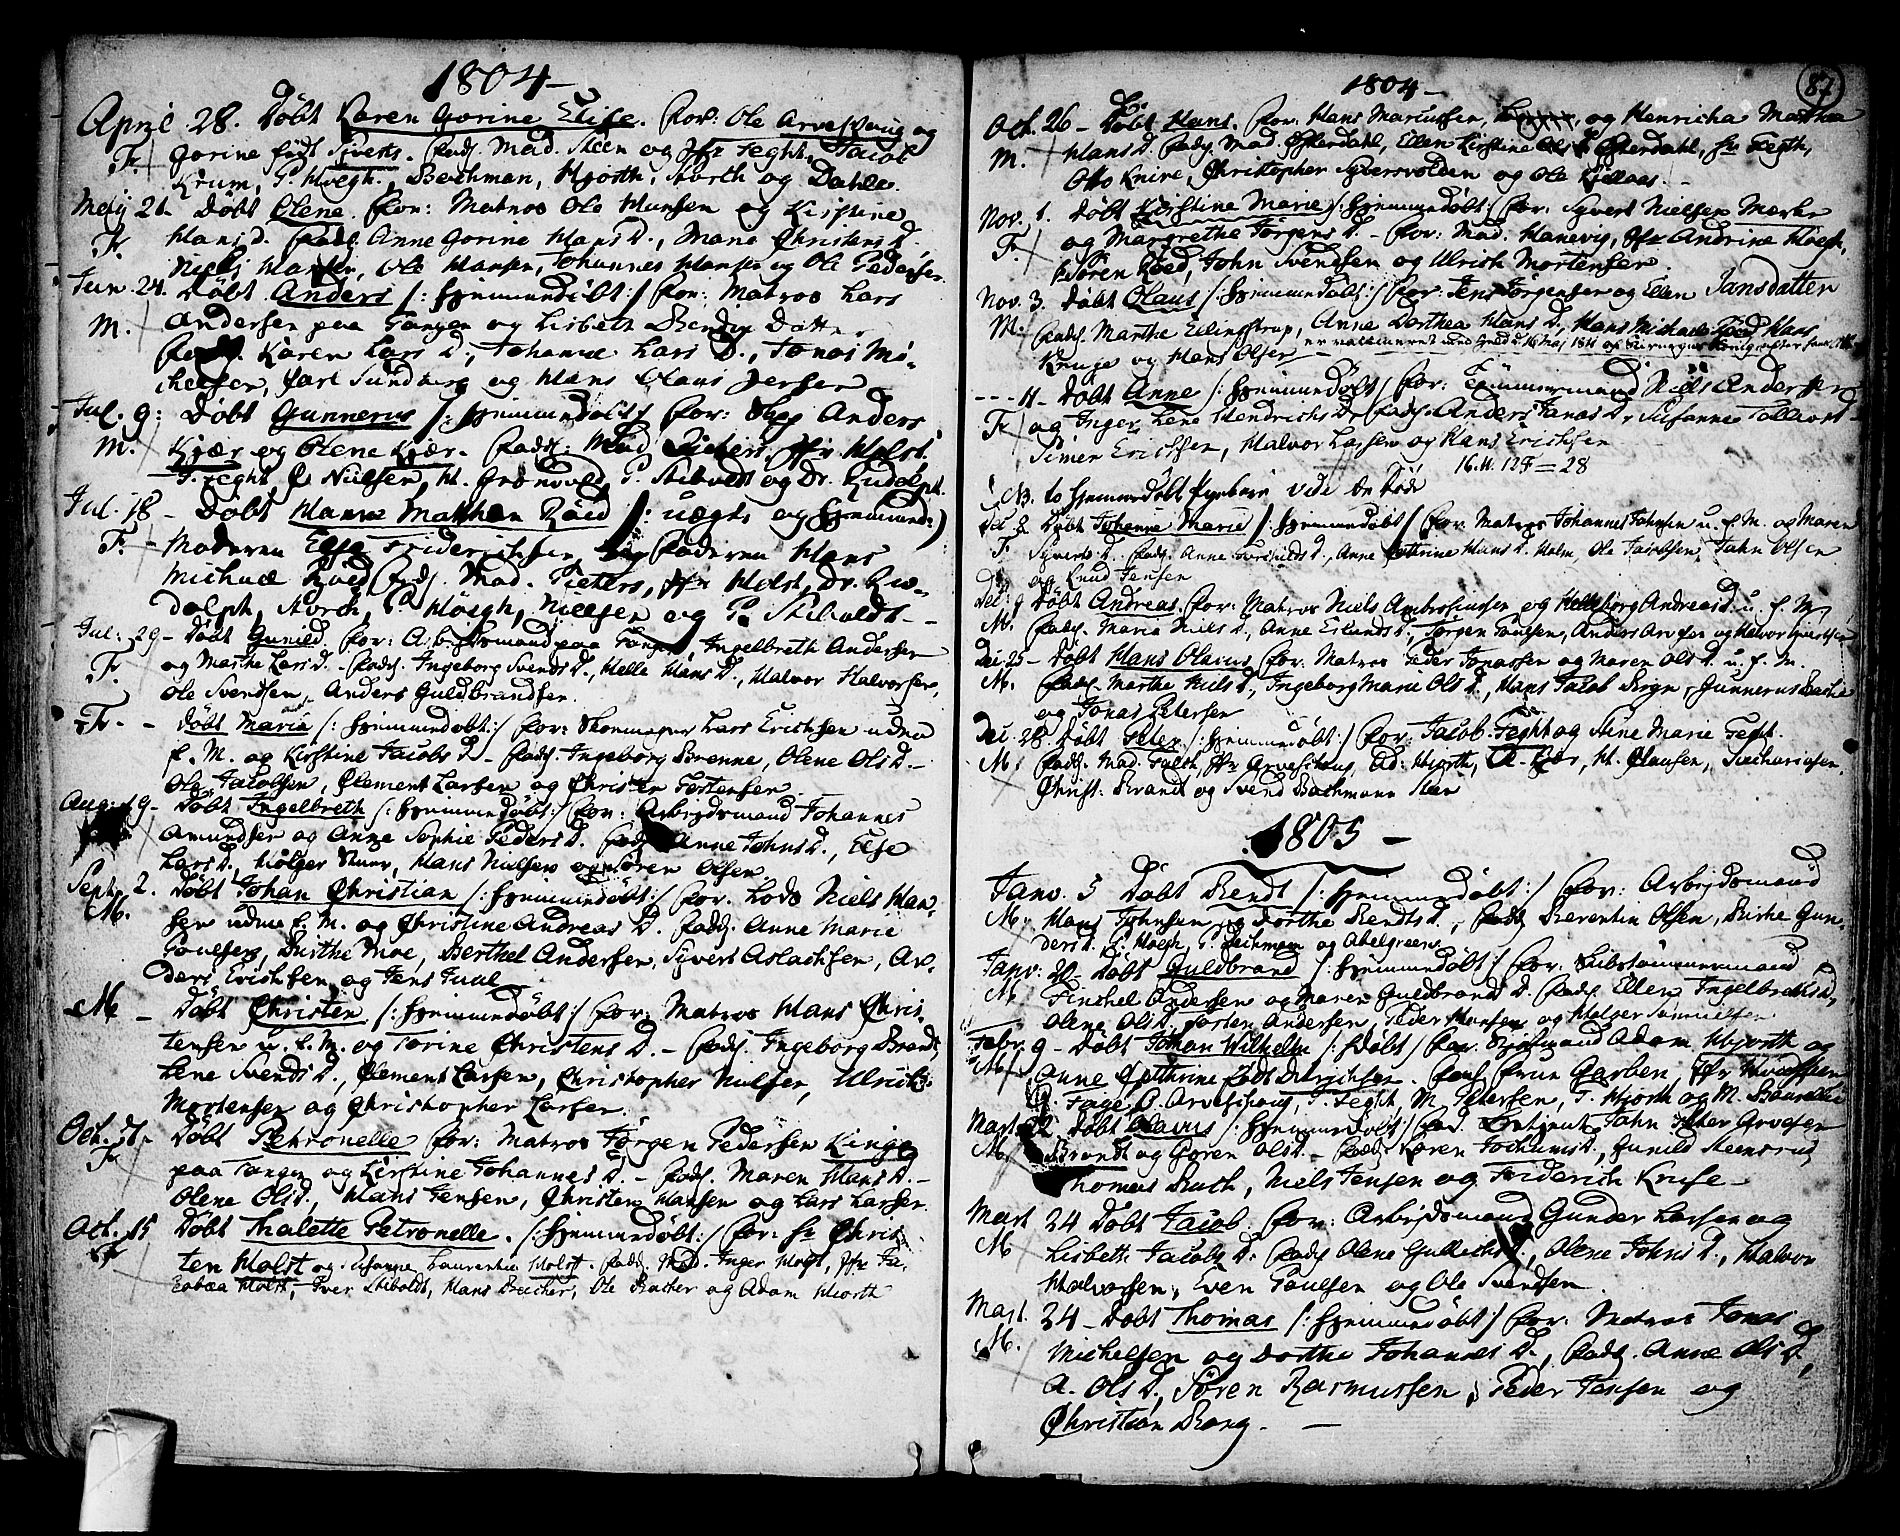 1804 –
April 28. Döbt Karen Gorine Elise. For: Ole Arveschoug og
Fr. Gorine født Syverts. Fadd. Mad. Steen og Jfr Feght, Jacob
Krum, P. Høegh, Bachman, Hjorth, Storch og Dahle.
Maij 21. Döbt Olene. For: Matros Ole Hansen og Kirstine
Fr. Hans D. Fadd. Anne Gorine Hans D., Maria Christens D.
Niels Hansen, Ole Hansen, Johannes Hansen og Ole Pedersen
Jun. 24. Döbt Anders /: hjemmedöbt :/ For: Matros Lars
M. Andersen paa Tangen og Lisbeth Bendix Datter
Fadd. Karen Lars D., Johanne Lars D., Jonas Mi-
chelsen, Carl Sundberg og Hans Olaus Jensen
Jul. 9: Döbt Gunnerus /: hjemmedöbt :/ For: Anders
M. Kjær og Olene Kjær. Fadd: Mad Pieters, Jfr Holst
P. Feght, C. Nielsen, H. Grønvold, P. Stibolt og Dr. Rudolph.
Jul. 18 – Döbt Hanna Mathea Röed /: uægte og hjemmed: )
F. – Moderen Else Friderichsen Faderen Hans
Michael Röed Fadd. Mad. Pieters, Jfr Holst, Dr. Ru-
dolph, Storch, P. Höegh, Nielsen og P. Stiboldt –
Jul: 29 – Döbt Gunild. For: Arbejdsmand paa Tangen, Ingelbreth Andersen
Fr. og Marthe Lars D. Fadd. Ingeborg Svends D., Helle Hans D., Halvor Halvorsen,
Ole Svendsen, Anders Guldbrandsen.
Fr. – Döbt Maria /: hjemmedöbt :/ For: Lars Erichsen uden
f. M. og Kirstine Jacobs D – Fadd. Ingeborg Brenne, Olene Ols D –
Ole Jacobsen, Clement Larsen og Christen Torstensen.
Aug: 19. Döbt Ingelbreth /: hjemmedöbt :/ For: Arbejdsmand Johannes
Amundsen og Anne Sophie Peders D. Fadd. Anne Johns D., Else
Lars D., Holger Skuer, Hans Nielsen og Sören Olsen.
Sept. 2. Döbt Johan Christian /: hjemmedöbt :/ For. Lods Niels Han-
M. sen uden f. M. og Christine Andreas D. Fadd. Anne Marie
Poulsen, Birthe Moe, Berthel Andersen, Sivert Aslachsen, An-
ders Erichsen og Jens Juul
M – Döbt Christen /: hjemmedöbt :/ For: Matros Hans Chris-
tensen u. f. M. og Torine Christens D. – Fadd. Ingeborg Brandt
Lene Svends D., Clement Larsen, Christopher Nielsen, Ulrich
Mortensen og Christopher Larsen.
Oct. 7 – Döbt Petronelle For: Matros Jörgen Pedersen Kinge
Fr. paa Tangen og Kirstine Johannes D. – Fadd. Maren Hans D. –
Olene Ols D., Hans Jensen, Christen Hansen og Lars Larsen.
Oct. 15 Döbt Thalette Petronelle. /: hjemmedöbt :/ For: Hr Chris-
Fr ten Holst og Johanne Laurentia Holst. Fadd. Mad. Inger Holst, Jfr Ja-
cobæa Holst, Iver Stiboldt, Hans Bucher, Ole Bucher og Adam Hiorth
87
1804 –
Oct. 26 – Döbt Hans. For: Hans Mariussen, og Henricha Mathea
M. Hans D. Fadd. Mad. Österdahl, Ellen Kirstine Österdahl, Hr Fegth,
Otto Knive, Christopher Syversvolden og Ole Killaas. –
Nov. 1. Döbt Kirstine Marie /: hjemmedöbt :/ For: Sywert Nielsen Mærke
Fr. og Margrethe Jörgens D – For: Mad: Hanevig, Jfr Andrine Höegh,
Sören Röed, John Svendsen og Ulrich Mortensen.
Nov. 3. Döbt Olaus /: hjemmedöbt :/ For: Jens Jörgensen og Ellen Jansdatter
M. Fadd. Marthe Ellingstrup, Anne Dorthea Hans D., Hans Michael Röed Hans
Kruge og Hans Olsen er vaccineret
---- 11 – Döbt Anne /: hjemmedöbt / For: Tömmermand Niels Andersen
Fr og Inger Lene Hendrichs D, Fadd. Anders Jonas D, Susanne Tollevs D –
Simen Erichsen, Halvor Larsen og Hans Erichsen
16 M. 12 F = 28
NB. to hjemmedöbt Pigebörn vide de Döde
Dec. 2 Döbt Johanne Marie /: hjemmedöbt / For. Matros Johannes Jahnsen u. f. M. og Maren
F. Syverts D. Fadd. Anne D., Anne Cathrine Hans D. Holm, Ole Jacobsen, Jahn Olsen
og Knud Jensen
Dec. 9 Döbt Andreas For: Matros Niels Ambrosiussen og Helleborg Andreas D. u. f. M.
M. Fadd. Maria Niels D., Anne Erlands D., Jörgen Paulsen, Anders Arvesen og Halvor
Dec. 25 – Döbt Hans Olavus For: Matros Peder Jonassen og Maren Ols D. u. f. M.
M. Fadd. Marthe Niels D., Ingeborg Marie Ols D., Hans Jacob Berge, Gunnerus
og Jonas Petersen
Dec. 28 Döbt Peter /: hjemmedöbt :/ For: Jacob Feght og Stine Marie Feght.
M. Fadd. Mad. Jalsh, Jfr Arveschoug, Ad: Hiorth, H. Clausen, Zachariasen,
Christ: Brandt og Svend Bachmann Steen
1805 –
Janv. 5 Döbt Bendt /: hjemmedöbt :/ For: Arbejdsmand
M. Hans Johnsen og Dorthe Bendts D., Fadd Berentin Olsen, Birthe Gun-
ders D. P. Höegh, P. Bachman og Abelgreen.
Janv: 20 – Döbt Guldbrand /: hjemmedöbt :/ For: Skibstömmermand
M. Finchel Andersen og Maren Guldbrands D. Fadd Ellen Ingelbreths D.,
Olene Ols D., Torsten Andersen, Peder Hansen og Holger Samuelsen
Febr. 9 – Döbt Johan Wilhelm /: Döbt / For. Adam Hjorth og
M. Anne Cathrine født Dierichsen. Fadd. Frue Garben, Jfr
P. Arveschoug, P. Feght, M. Petersen, T. Hiorth og M.
Mart. 2 Döbt Olavus /: hjemmedöbt / For. Jahn Peter Arvesen
M. Brandt og Goren Ols D. – Fadd. Karen Jochums D., Gunild Stensrud
Thomas Buch, Niels Jensen og Friderich Kruse –
Mart 24 Döbt Jacob. For: Arbejdsmand Gunder Larsen og
M Lisbeth Jacobs D. Fadd. Olene Gullichs D., Olene Johns D., Halvor
Halvorsen, Even Poulsen og Ole Svendsen
Mart. 24 – Döbt Thomas /: hjemmedöbt :/ For: Matros Jonas
M. Michelsen og Dorthe Johannes D., Fadd. Anne Ols D.,
A. Ols D., Sören Rasmussen, Peder Jensen og
Christian Bang. –